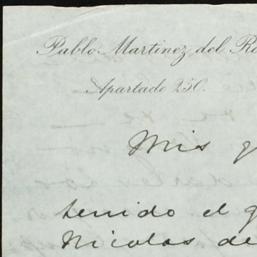 Pablo Martinez del R
Apartado 250.
Mis
tenido el g
Nicolas de